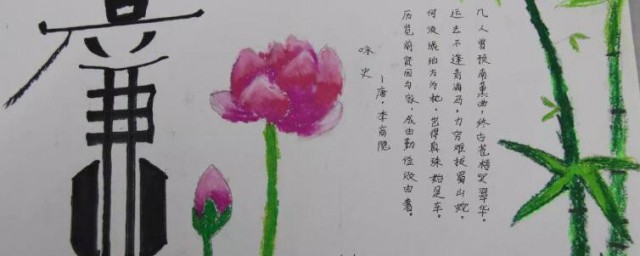 咏史
—唐·李商隐
历览前贤国与家，成由勤俭败由奢。
何须琥珀方为枕，岂得真珠始是车。
运去不逢青海马，力穷难拔蜀山蛇。
几人曾预南薰曲，终古苍梧哭翠华。